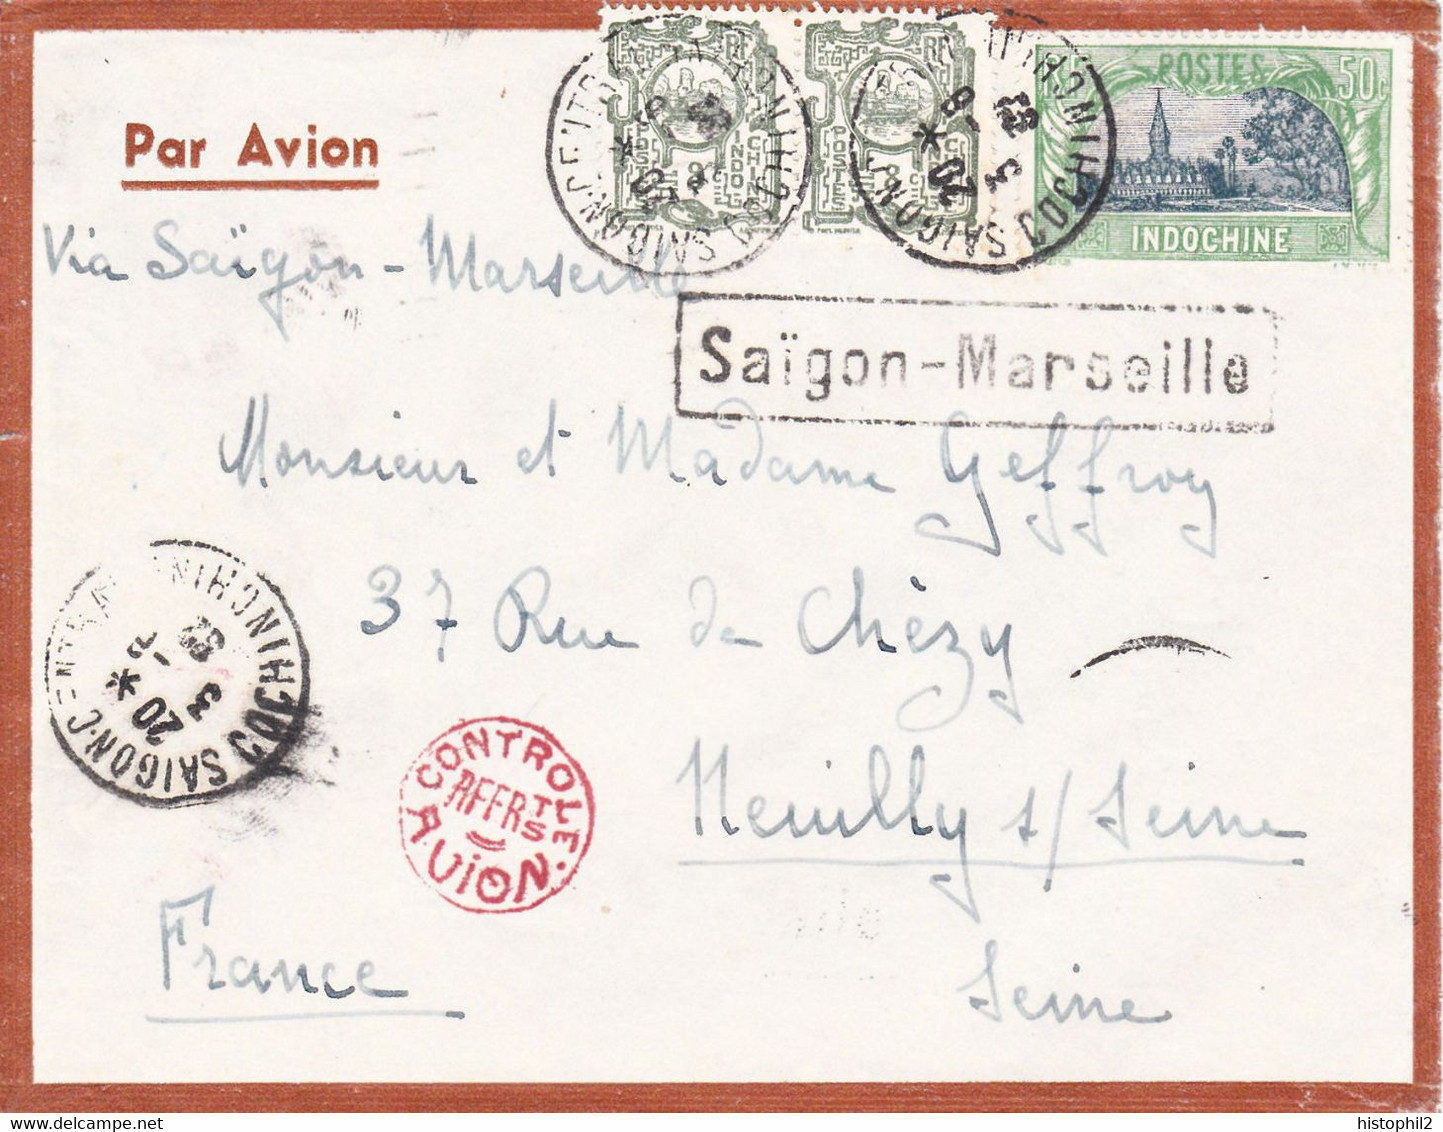 Par Avion
RF POSTES 50c
INDOCHINE
INDOCHINE
POSTES
RF
INDOCHINE
POSTES
SAIGON-CENTRAL COCHINCHINE
SAIGON COCHINCHINE
Via Saïgon - Marseille
Saïgon-Marseille
Monsieur et Madame Geffroy
37 Rue de Chézy
SAIGON-CENTRAL COCHINCHINE
20 *
3
CONTROLE
AFFRTS
AVION
Neuilly s/ Seine
Seine
France
histophil2